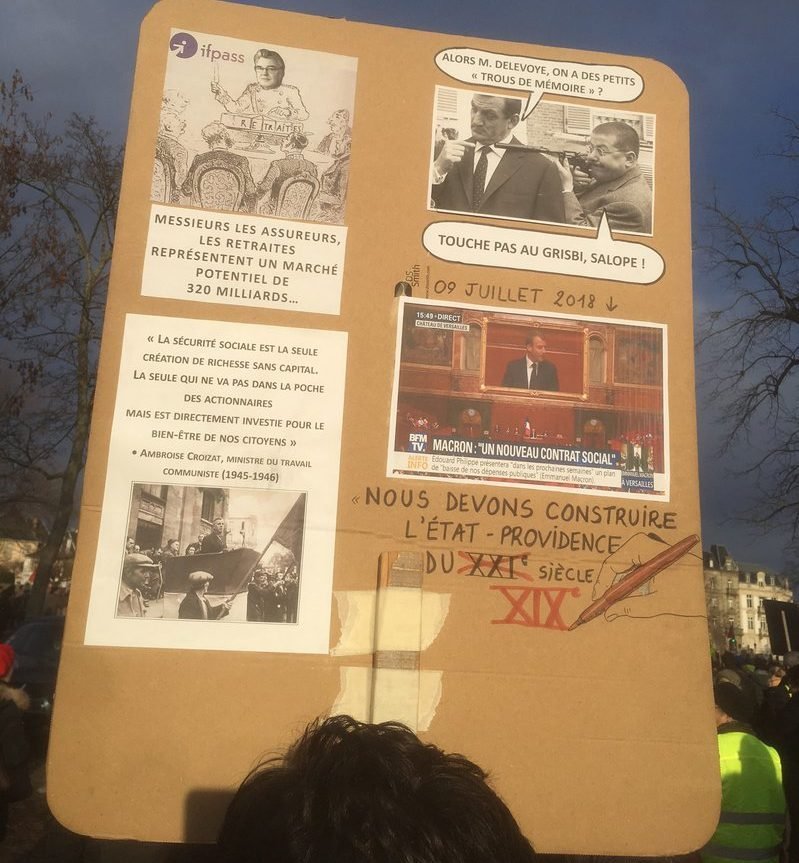 ifpass
RETRAITES
MESSIEURS LES ASSUREURS,
LES RETRAITES
REPRÉSENTENT UN MARCHÉ
POTENTIEL DE
320 MILLIARDS...
« LA SÉCURITÉ SOCIALE EST LA SEULE
CRÉATION DE RICHESSE SANS CAPITAL.
LA SEULE QUI NE VA PAS DANS LA POCHE
DES ACTIONNAIRES
MAIS EST DIRECTEMENT INVESTIE POUR LE
BIEN-ÊTRE DE NOS CITOYENS »
• AMBROISE CROIZAT, MINISTRE DU TRAVAIL
COMMUNISTE (1945-1946)
ALORS M. DELEVOYE, ON A DES PETITS
« TROUS DE MÉMOIRE » ?
TOUCHE PAS AU GRISBI, SALOPE !
09 JUILLET 2018 ↓
15:49 • DIRECT
CHÂTEAU DE VERSAILLES
BFM
TV.
MACRON : "UN NOUVEAU CONTRAT SOCIAL"
ALERTE
INFO
Edouard Philippe présentera "dans les prochaines semaines" un plan
de "baisse de nos dépenses publiques" (Emmanuel Macron)
À VERSAILLES
« NOUS DEVONS CONSTRUIRE
L'ÉTAT-PROVIDENCE
DU XXIe SIÈCLE
XIXe